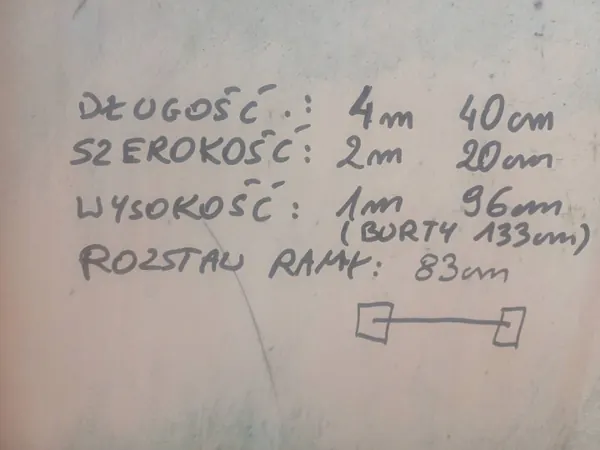 DŁUGOŚĆ.: 4m 40cm
SZEROKOŚĆ: 2m 20cm
WYSOKOŚĆ: 1m 96cm
(BURTY 133cm)
ROZSTAW RAMY: 83cm